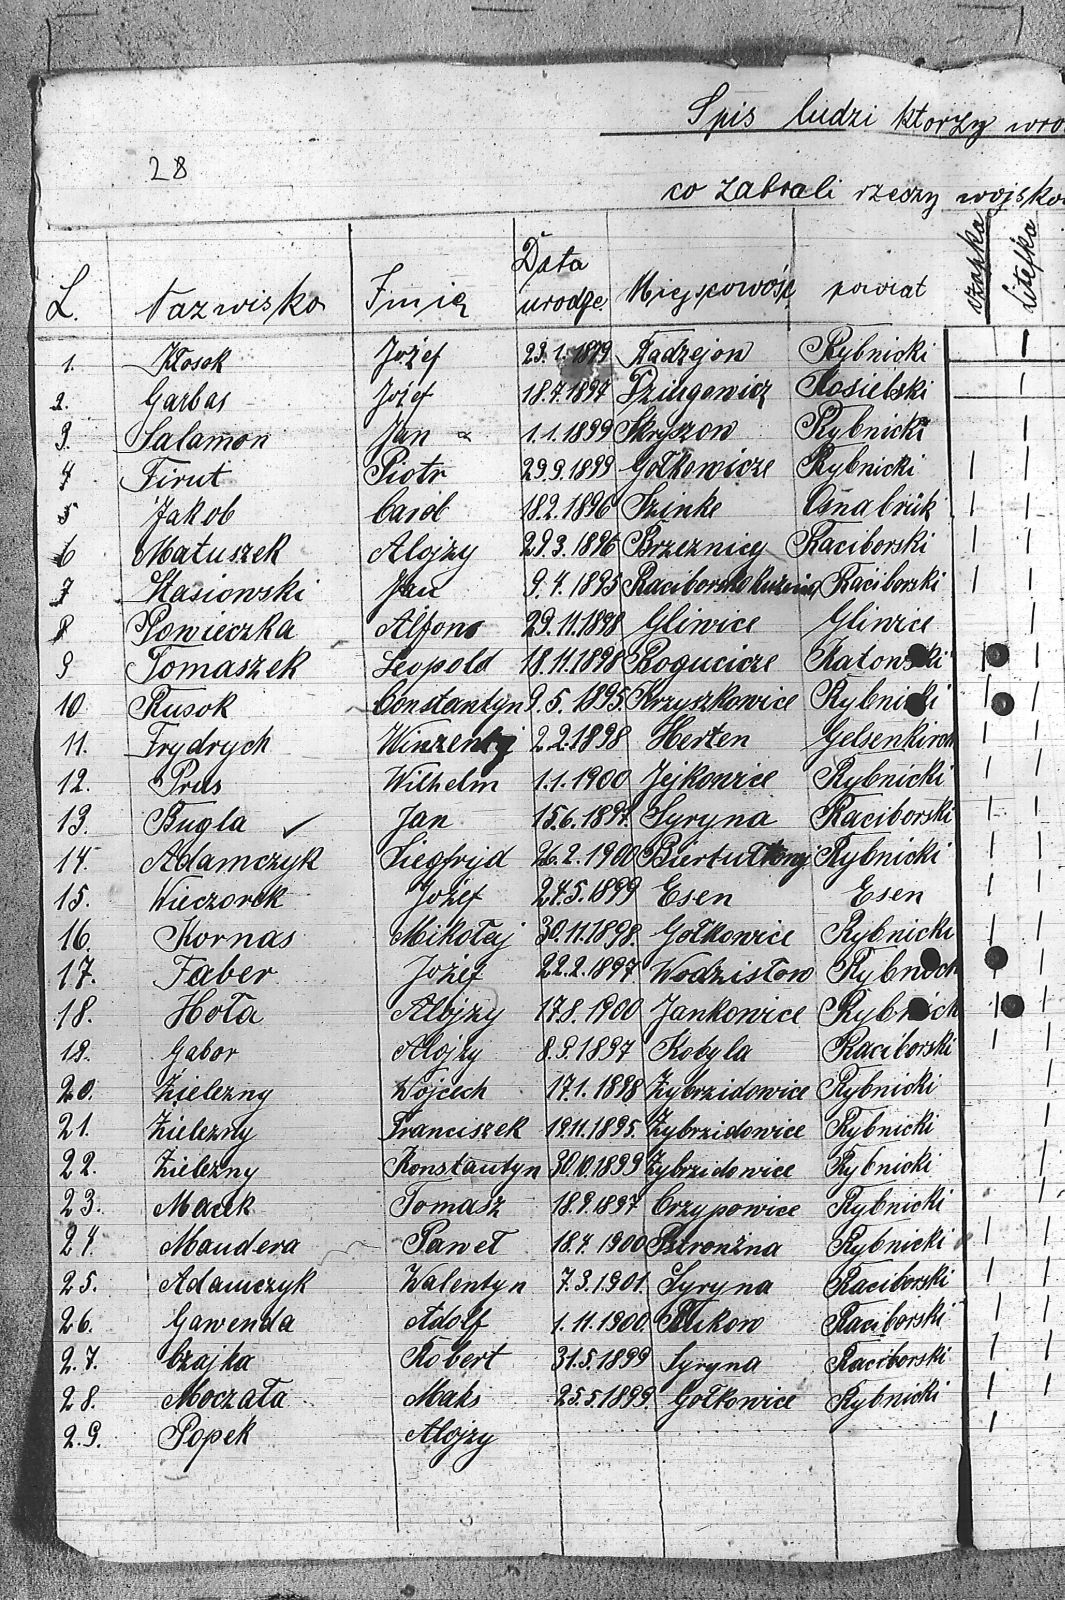 Spis ludzi ktorzy
28
co zabrali rzeczy
L. Nazwisko Imię Data urodze. Miejscowość powiat czapka Litefka
1. Kłosok Jożef 23.1.1899 Radzejow Rybnicki
2. Garbas Jożef 18.7.1897 Dziergowicz Kosielski
3. Salamon Jan 1.1.1899 Skryszow Rybnicki
4 Firut Piotr 29.9.1899 Gołkowicze Rybnicki
5 Jakob Carol 18.2.1896 Osnabrük
6 Matuszek Alojzy 29.3.1896 Brzeznicy Raciborski
7 Stasiowski Jan 9.4.1895 Raciborski
8 Powieczka Alfons 29.11.1898 Gliwice Gliwice
9 Tomaszek Leopold 18.11.1898 Bogucicze Katowski
10 Rusok Constantyn 9.5.1895 Krzyszkowice Rybnicki
11. Frydrych Winzenty 2.2.1898 Herten Gelsenkirch
12. Prus Wilhelm 1.1.1900 Jejkowice Rybnicki
13. Bugla Jan 15.6.1897. Syryna Raciborski
14. Adamczyk Siegfryd 26.2.1900 Rybnicki
15. Wieczorek Jożef 24.5.1899 Esen Esen
16. Kornas Mikołaj 30.11.1898. Gołkowice Rybnicki
17. Faber Jożef 22.2.1897 Wodzisłow Rybnich
18. Hoła Alojzy 17.8.1900 Jankowice Rybnich
19. Gabor Alojzy 8.9.1897 Kobyla Raciborski
20. Zielezny Wojcech 17.1.1898 Zybrzidowice Rybnicki
21. Zielezny Franciszek 19.11.1895. Zybrzidowice Rybnicki
22. Zielezny Konstantyn 30.10.1899 Zybrzidowice Rybnicki
23. Macek Tomasz 18.9.1897 Crzypowice Rybnicki
24. Maudera Paweł 18.4.1900 Pstronżna Rybnicki
25. Adamczyk Walentyn 7.3.1901. Syryna Raciborski
26. Gawenda Adolf 1.11.1900 Raciborski
27. Czajka Robert 31.5.1899 Syryna Raciborski
28. Moczała Maks 25.5.1899. Gołkowice Rybnicki
29. Popek Alojzy